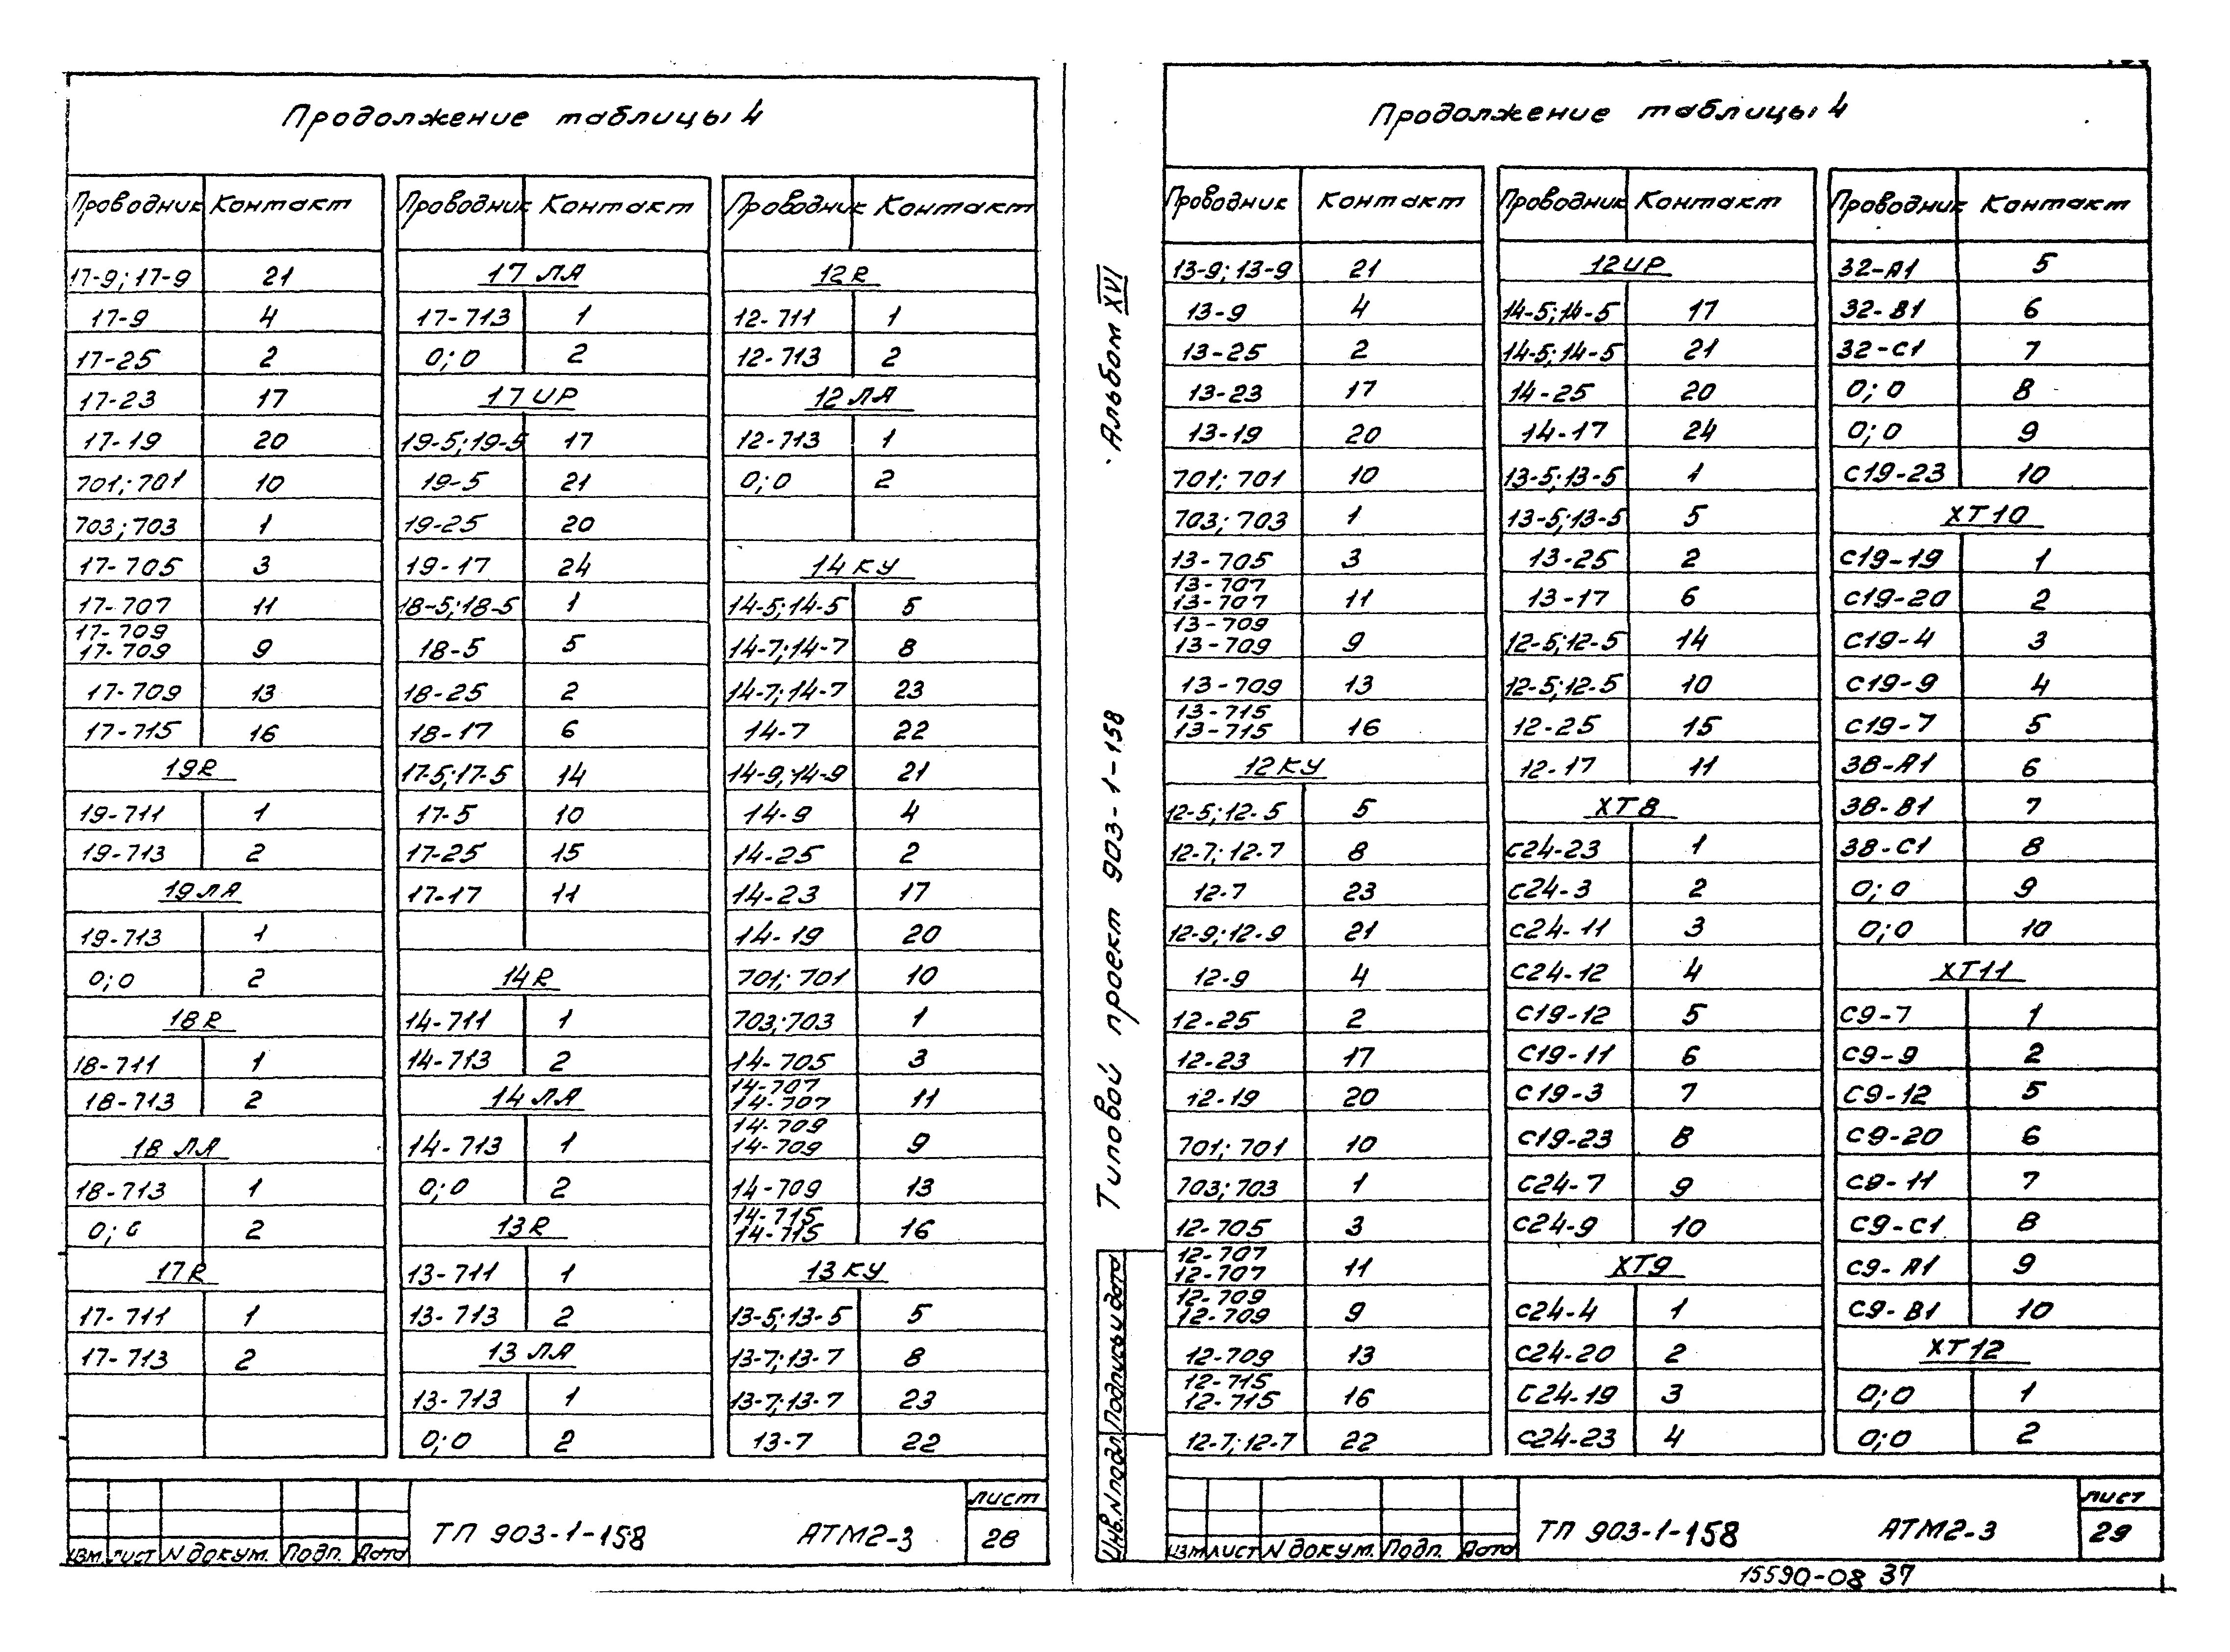 Продолжение таблицы 4
Проводник Контакт
17-9; 17-9 21
17-9 4
17-25 2
17-23 17
17-19 20
701; 701 10
703; 703 1
17-705 3
17-707 11
17-709
17-709 9
17-709 13
17-715 16
19R
19-711 1
19-713 2
19ЛА
19-713 1
0; 0 2
18R
18-711 1
18-713 2
18 ЛА
18-713 1
0; 0 2
17R
17-711 1
17-713 2
Проводник Контакт
17 ЛА
17-713 1
0; 0 2
17 UP
19-5; 19-5 17
19-5 21
19-25 20
19-17 24
18-5; 18-5 1
18-5 5
18-25 2
18-17 6
17-5; 17-5 14
17-5 10
17-25 15
17-17 11
14R
14-711 1
14-713 2
14 ЛА
14-713 1
0; 0 2
13R
13-711 1
13-713 2
13 ЛА
13-713 1
0; 0 2
Проводник Контакт
12R
12-711 1
12-713 2
12 ЛА
12-713 1
0; 0 2
14 КУ
14-5; 14-5 5
14-7; 14-7 8
14-7; 14-7 23
14-7 22
14-9; 14-9 21
14-9 4
14-25 2
14-23 17
14-19 20
701; 701 10
703; 703 1
14-705 3
14-707
14-707 11
14-709
14-709 9
14-709 13
14-715
14-715 16
13 КУ
13-5; 13-5 5
13-7; 13-7 8
13-7; 13-7 23
13-7 22
Изм. Лист N докум. Подп. Дата
ТП 903-1-158 АТМ2-3
Лист
28
Альбом XVI
Типовой проект 903-1-158
Инв. N подл. Подпись и дата
Продолжение таблицы 4
Проводник Контакт
13-9; 13-9 21
13-9 4
13-25 2
13-23 17
13-19 20
701; 701 10
703; 703 1
13-705 3
13-707
13-707 11
13-709
13-709 9
13-709 13
13-715
13-715 16
12 КУ
12-5; 12-5 5
12-7; 12-7 8
12-7 23
12-9; 12-9 21
12-9 4
12-25 2
12-23 17
12-19 20
701; 701 10
703; 703 1
12-705 3
12-707
12-707 11
12-709
12-709 9
12-709 13
12-715
12-715 16
12-7; 12-7 22
Проводник Контакт
12 UP
14-5; 14-5 17
14-5; 14-5 21
14-25 20
14-17 24
13-5; 13-5 1
13-5; 13-5 5
13-25 2
13-17 6
12-5; 12-5 14
12-5; 12-5 10
12-25 15
12-17 11
ХТ8
С24-23 1
С24-3 2
С24-11 3
С24-12 4
С19-12 5
С19-11 6
С19-3 7
С19-23 8
С24-7 9
С24-9 10
ХТ9
С24-4 1
С24-20 2
С24-19 3
С24-23 4
Проводник Контакт
32-А1 5
32-В1 6
32-С1 7
0; 0 8
0; 0 9
С19-23 10
ХТ10
С19-19 1
С19-20 2
С19-4 3
С19-9 4
С19-7 5
38-А1 6
38-В1 7
38-С1 8
0; 0 9
0; 0 10
ХТ11
С9-7 1
С9-9 2
С9-12 5
С9-20 6
С9-11 7
С9-С1 8
С9-А1 9
С9-В1 10
ХТ12
0; 0 1
0; 0 2
Изм Лист N докум. Подп. Дата
ТП 903-1-158 АТМ2-3
Лист
29
15590-08 37